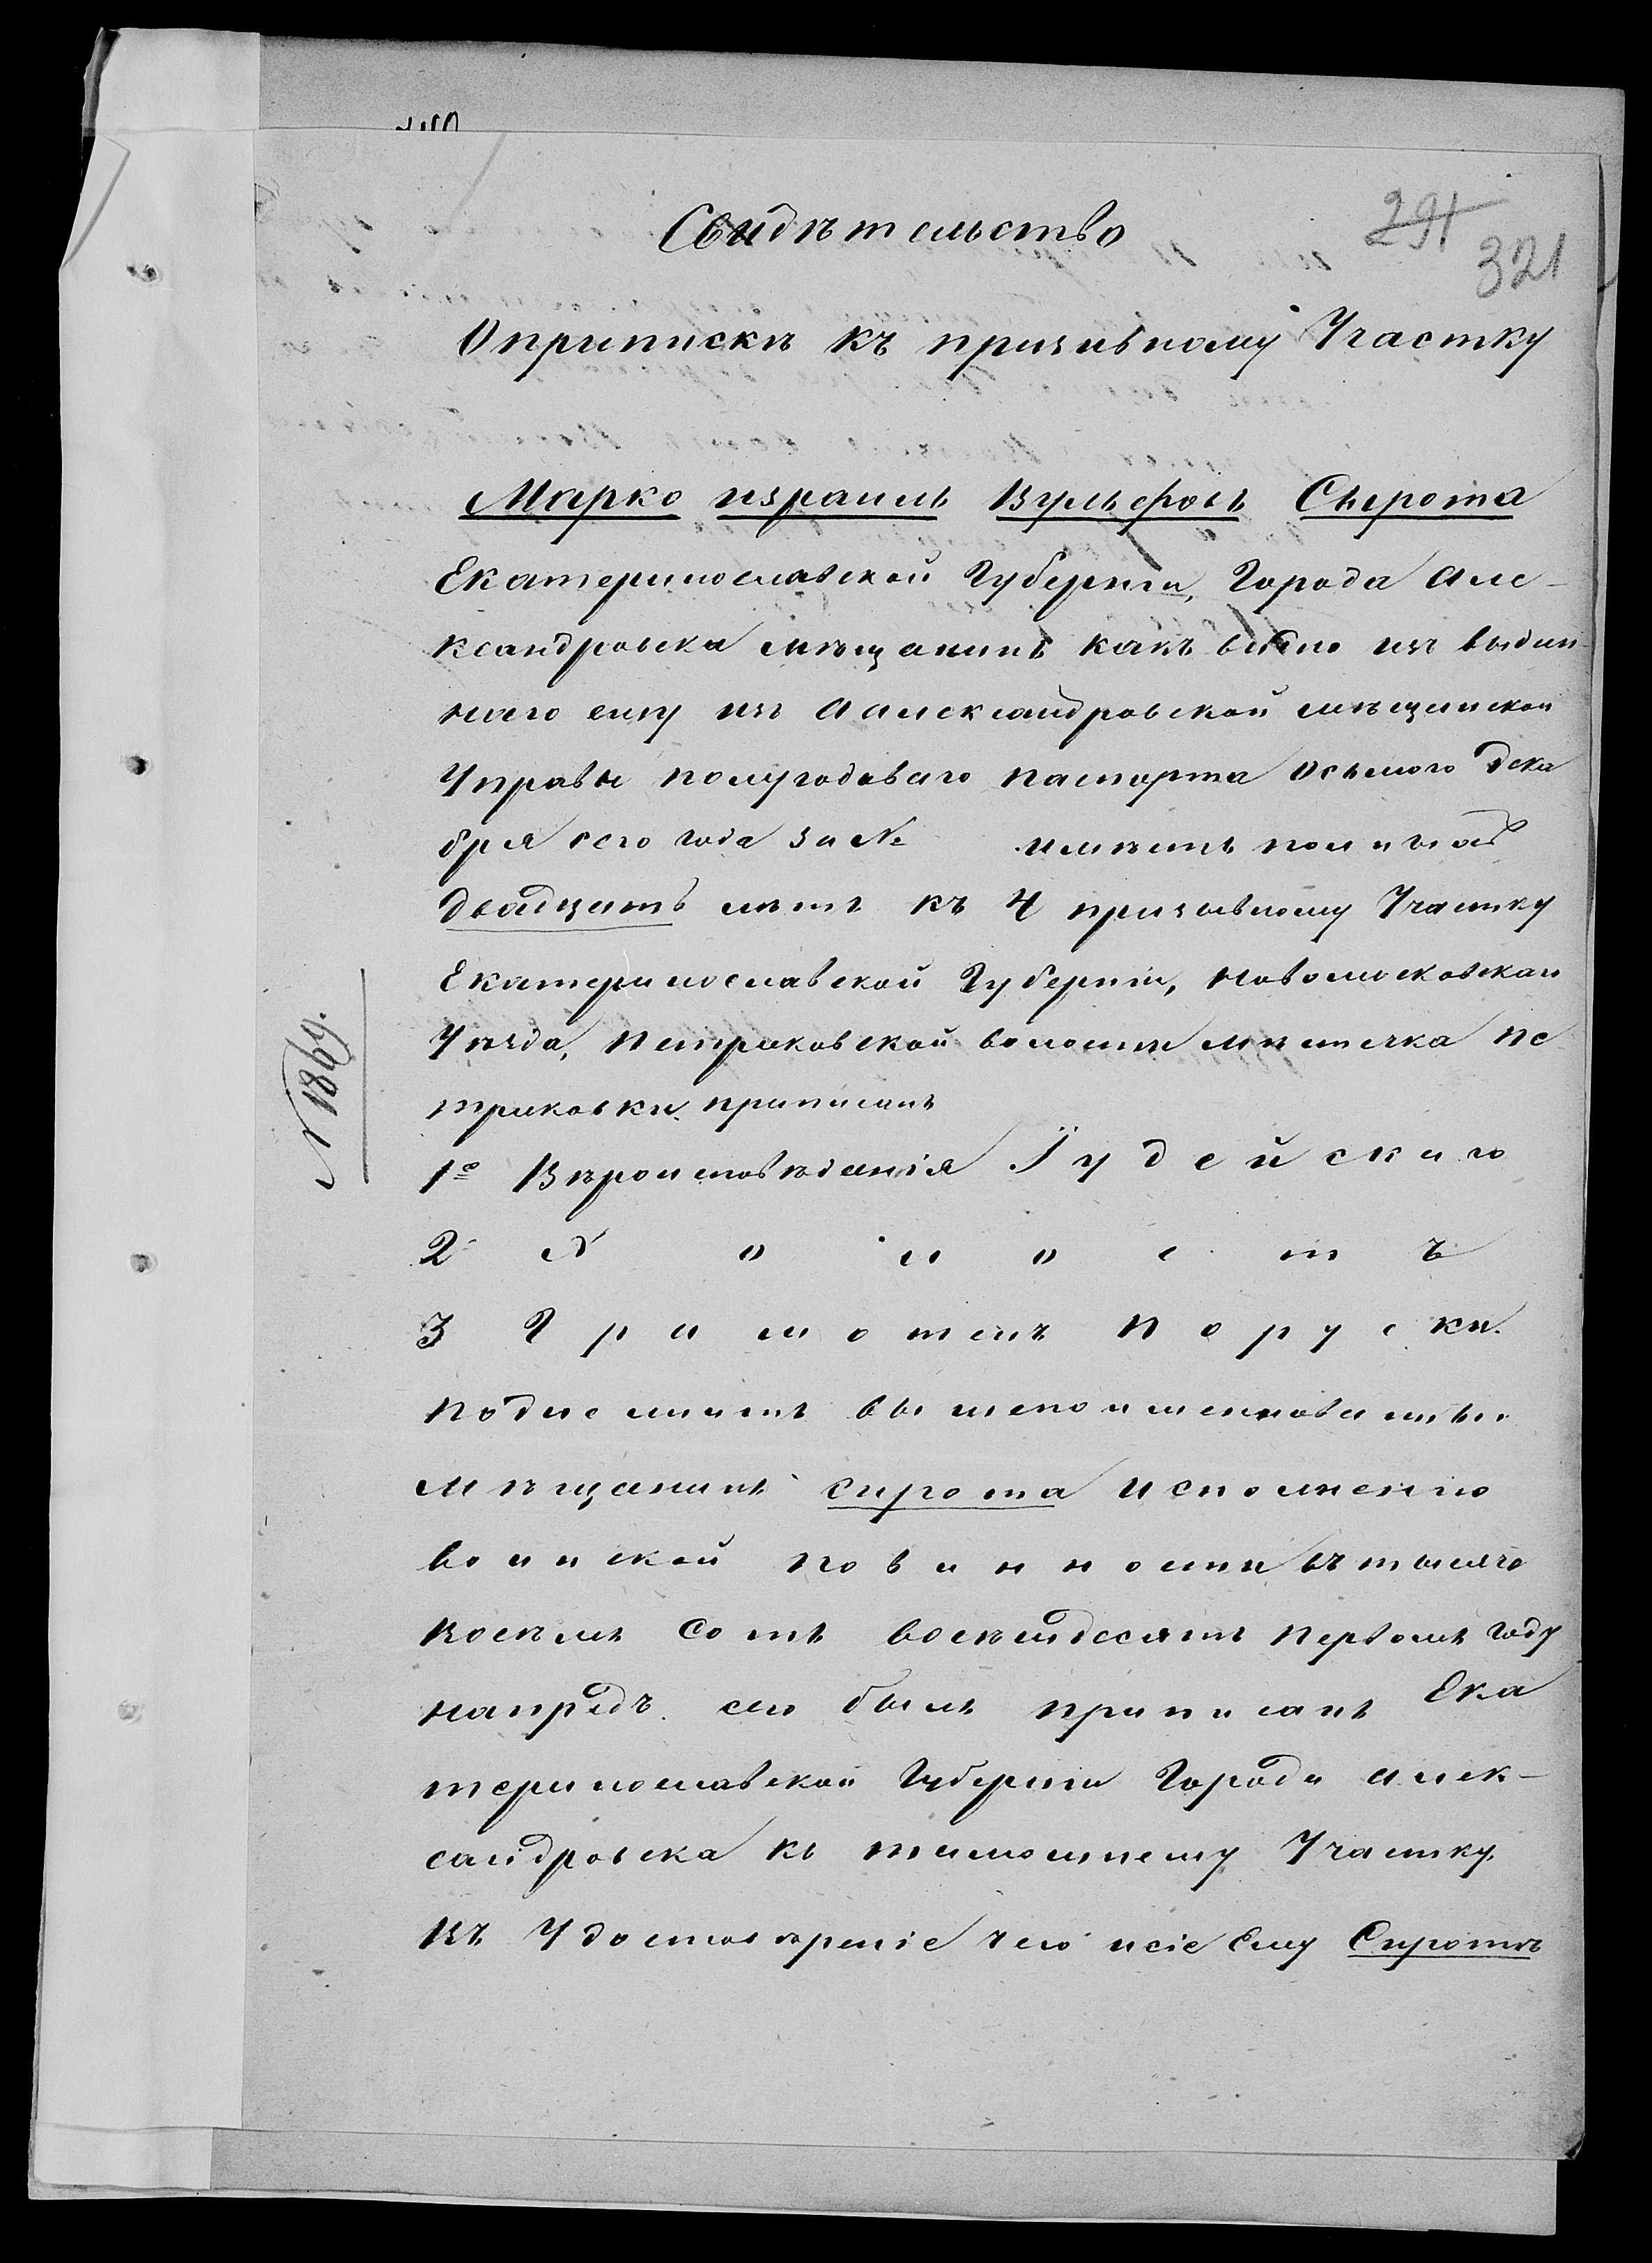 291
321
Свидѣтельство
О припискѣ къ призывному Участку
Марко израиль Вульфовъ Сьерота
Екатеринославской Губерніи, Города Але-
ксандровска мѣщанинъ какъ видно изъ выдан
наго ему изъ Аалександровской мѣщанской
Управы полугодоваго паспорта Осьмого Дека
бря сего года за № имѣетъ
двадцать лѣтъ къ 4 призывному Участку
Екатеринославской Губерніи, Новомосковскаго
Уѣзда, Петриковской волости мѣстечка Пе
триковки. приписанъ
1е Вѣроисповѣданія Їудейскаго
2 Холостъ
3 Грамотенъ Поруски.
Подлежитъ вышепоименнованный
Мѣщанинъ сирота исполненію
воинской повинности въ тысяче
восемь сотъ восемьдесятъ первомъ году
напредъ сего былъ приписанъ Ека
теринославской Губерніи Города Алек-
сандровска къ тамошнему Участку.
Въ Удостовѣреніе чего и сіе Ему Сиротѣ
№ 1869.